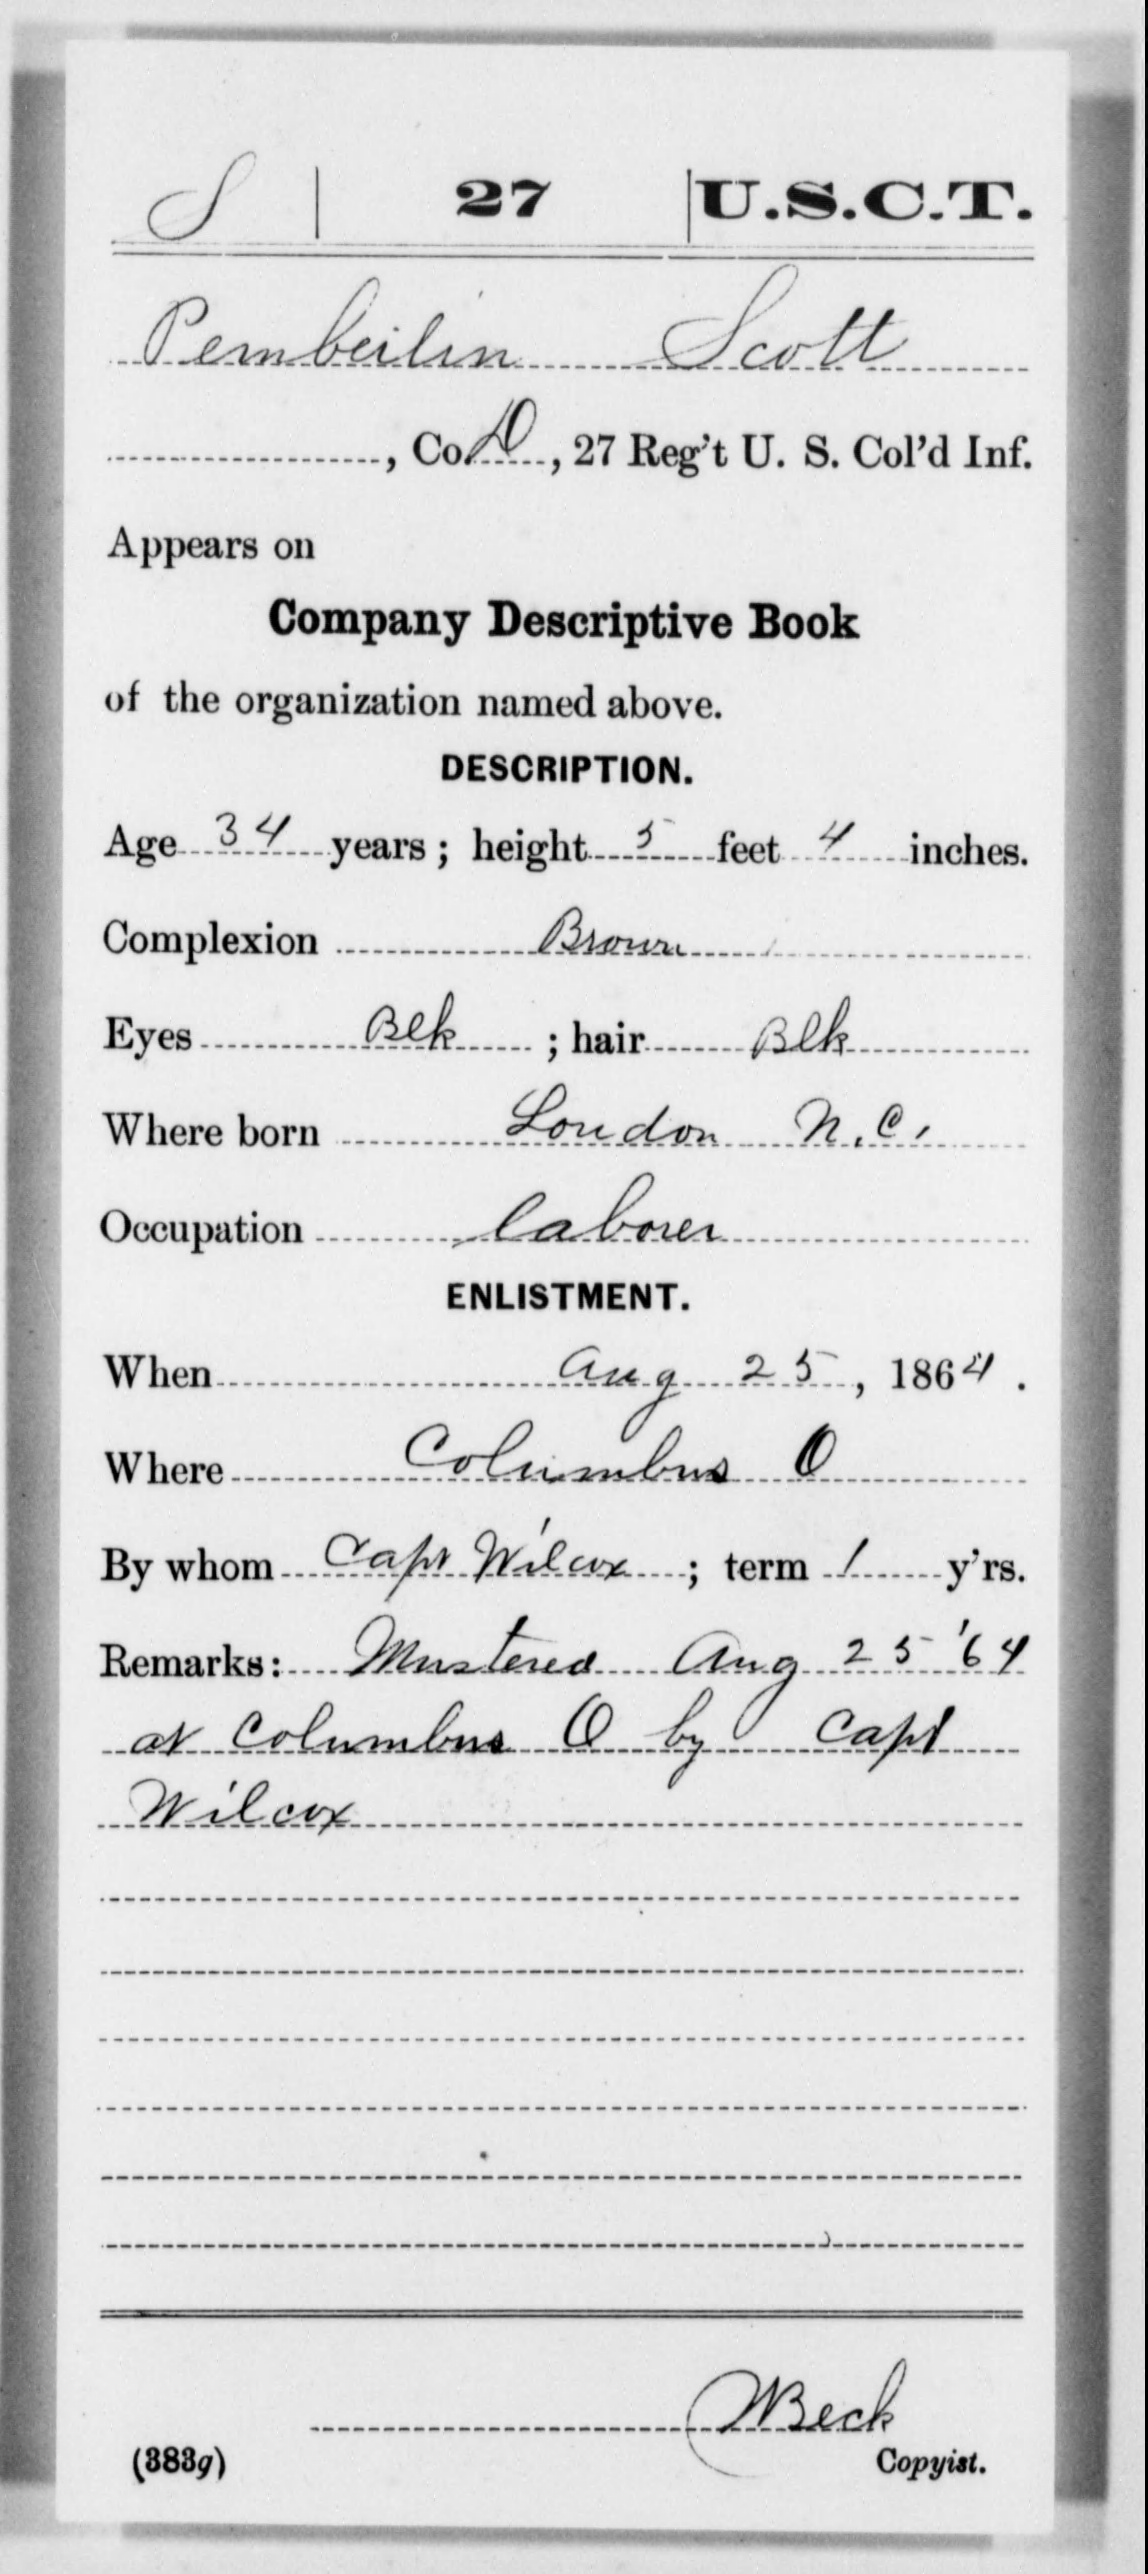 S | 27 | U.S.C.T.
Pemberlin Scott
, Co. D, 27 Reg't U. S. Col'd Inf.
Appears on
Company Descriptive Book
of the organization named above.
DESCRIPTION.
Age 34 years; height 5 feet 4 inches.
Complexion Brown
Eyes Blk ; hair Blk
Where born Loudon N.C.
Occupation laborer
ENLISTMENT.
When Aug 25, 1864.
Where Columbus O
By whom Capt Wilcox ; term 1 y'rs.
Remarks: Mustered Aug 25 '64
at Columbus O by Capt
Wilcox
WBeck
(383g) Copyist.